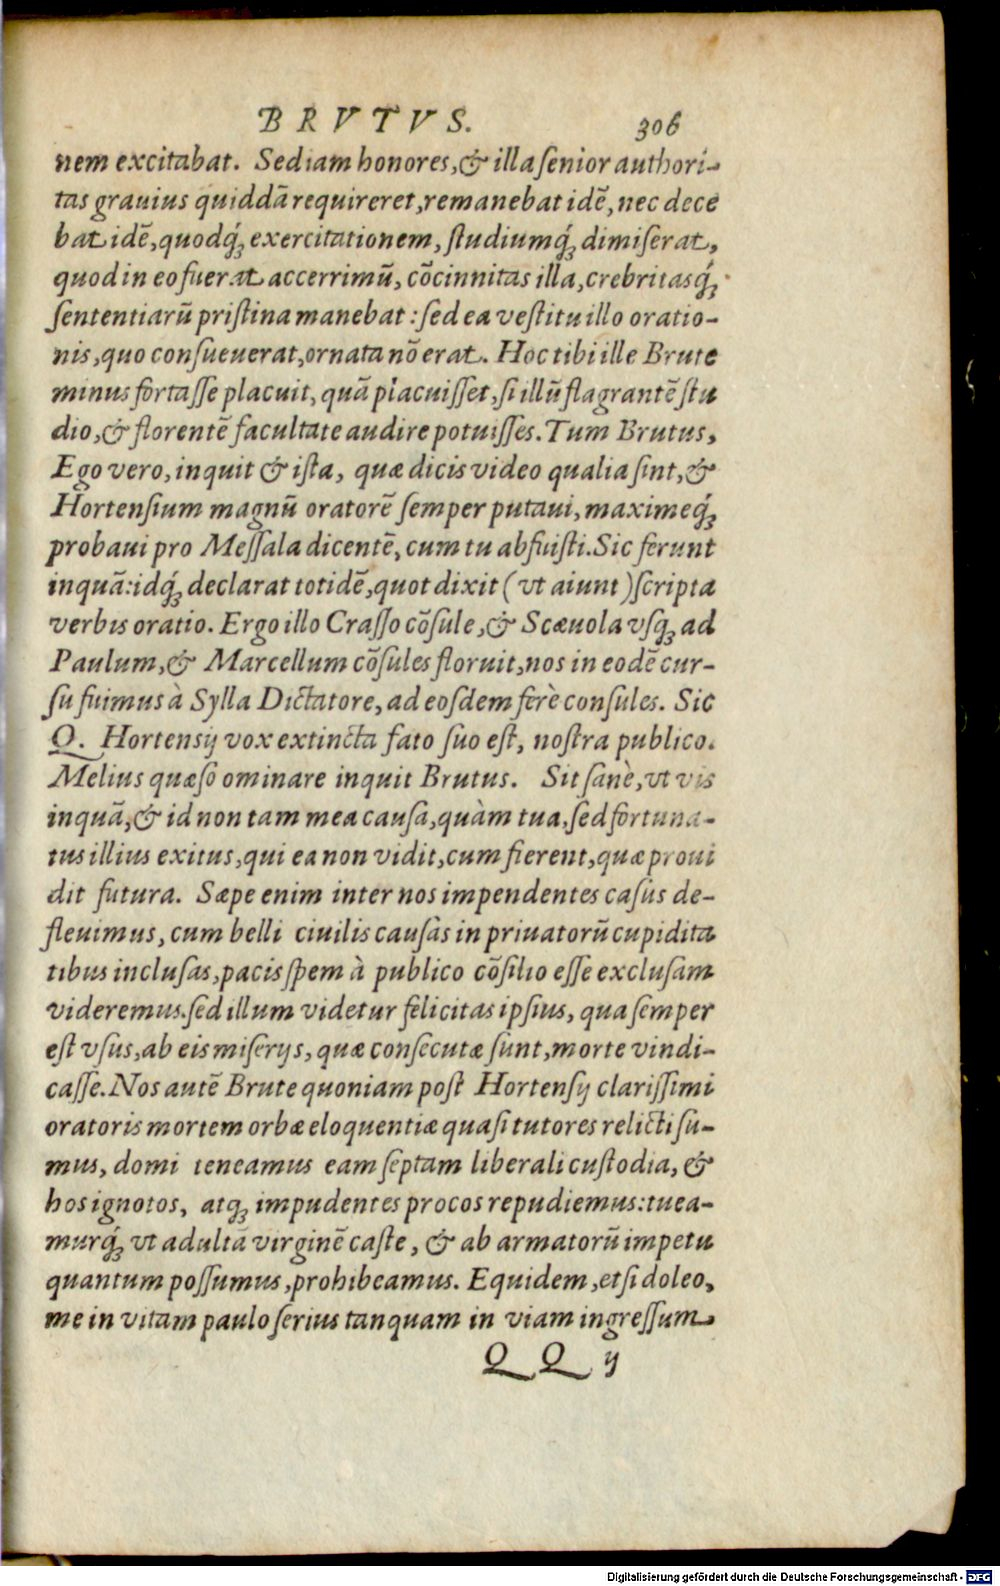 BRVTVS. 306
nem excitabat. Sed iam honores, & illa senior authori-
tas grauius quiddā requireret, remanebat idē, nec dece
bat idē, quodq́; exercitationem, studiumq́; dimiserat,
quod in eo fuerat accerrimū, cōcinnitas illa, crebritasq́;
sententiarū pristina manebat: sed ea vestitu illo oratio-
nis, quo consueuerat, ornata nō erat. Hoc tibi ille Brute
minus fortasse placuit, quā placuisset, si illū flagrantē stu
dio, & florentē facultate audire potuisses. Tum Brutus,
Ego vero, inquit & ista, quæ dicis video qualia sint, &
Hortensium magnū oratorē semper putaui, maximeq́;
probaui pro Messala dicentē, cum tu abfuisti. Sic ferunt
inquā: idq́; declarat totidē, quot dixit (vt aiunt) scripta
verbis oratio. Ergo illo Crasso cōsule, & Scæuola vsq; ad
Paulum, & Marcellum cōsules floruit, nos in eodē cur-
su fuimus à Sylla Dictatore, ad eosdem ferè consules. Sic
Q. Hortensij vox extincta fato suo est, nostra publico.
Melius quæso ominare inquit Brutus. Sit sanè, vt vis
inquā, & id non tam mea causa, quàm tua, sed fortuna-
tus illius exitus, qui ea non vidit, cum fierent, quæ proui
dit futura. Sæpe enim inter nos impendentes casus de-
fleuimus, cum belli ciuilis causas in priuatorū cupidita
tibus inclusas, pacis spem à publico cōsilio esse exclusam
videremus. sed illum videtur felicitas ipsius, qua semper
est vsus, ab eis miserijs, quæ consecutæ sunt, morte vindi-
casse. Nos autē Brute quoniam post Hortensij clarissimi
oratoris mortem orbæ eloquentiæ quasi tutores relicti su-
mus, domi teneamus eam septam liberali custodia, &
hos ignotos, atq; impudentes procos repudiemus: tuea-
murq́; vt adultā virginē caste, & ab armatorū impetu
quantum possumus, prohibeamus. Equidem, etsi doleo,
me in vitam paulo serius tanquam in viam ingressum
QQ ij
Digitalisierung gefördert durch die Deutsche Forschungsgemeinschaft - DFG